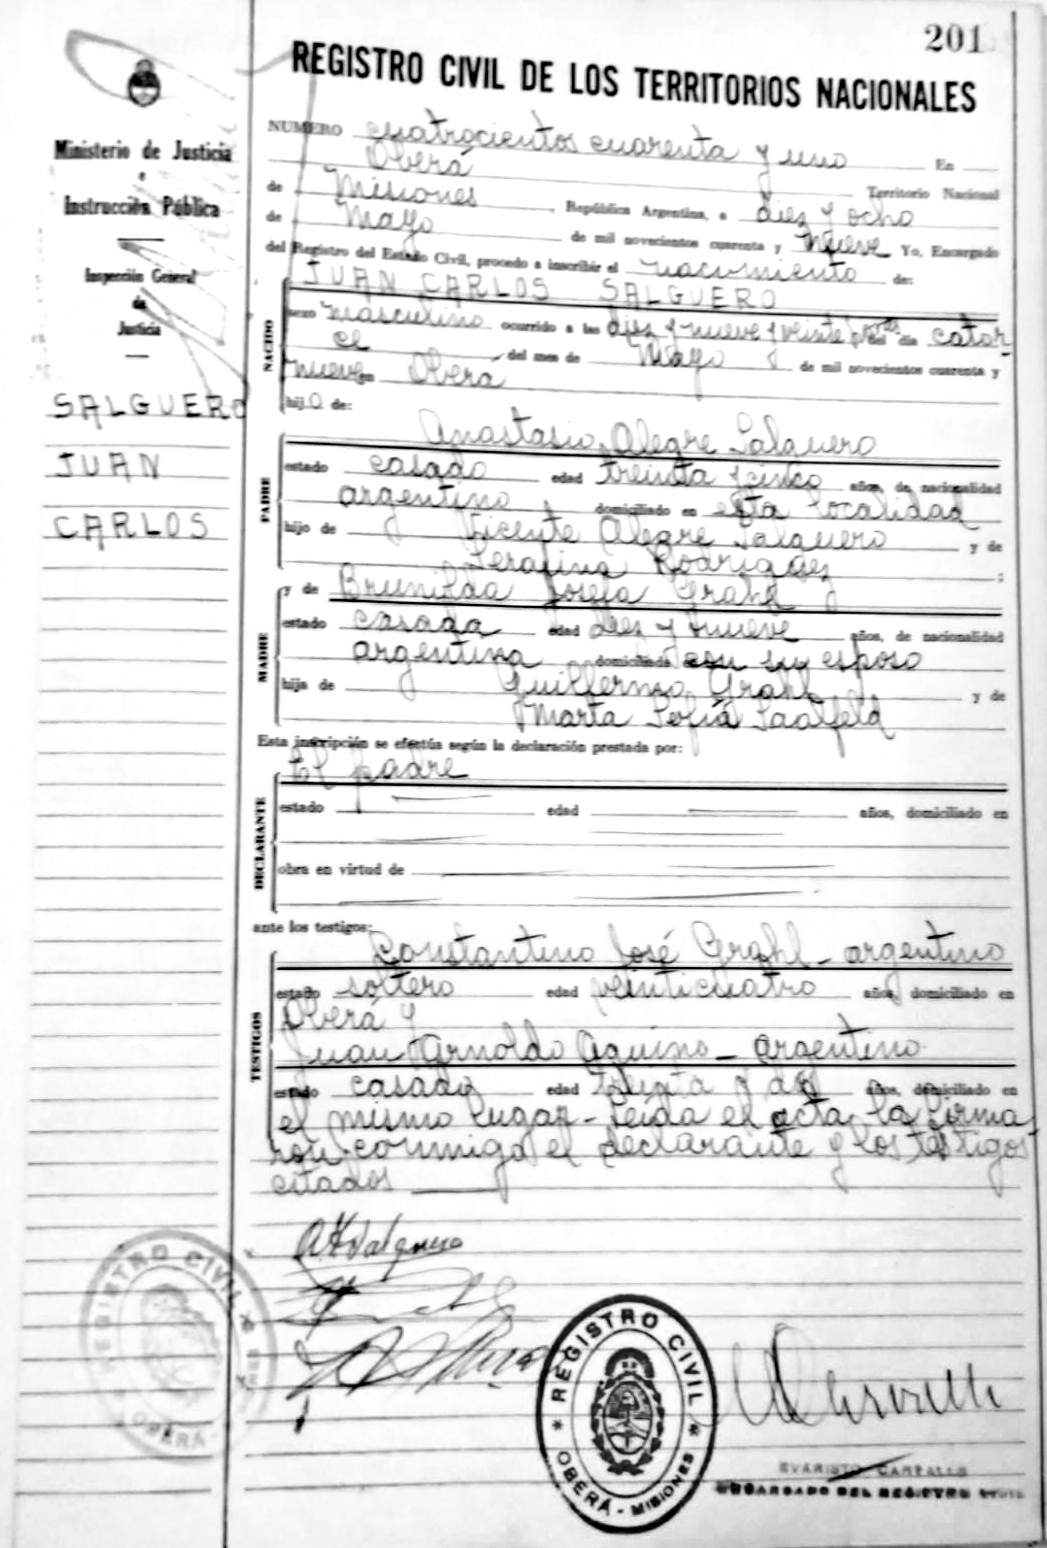 201
REGISTRO CIVIL DE LOS TERRITORIOS NACIONALES
Ministerio de Justicia
e
Instrucción Pública
Inspección General
de
Justicia
SALGUERO
JUAN
CARLOS
NUMERO cuatrocientos cuarenta y uno En
Oberá Territorio Nacional
de Misiones, República Argentina, a diez y ocho
de Mayo de mil novecientos cuarenta y nueve Yo, Encargado
del Registro del Estado Civil, procedo a inscribir el nacimiento de:
JUAN CARLOS SALGUERO
NACIDO
sexo masculino ocurrido a las diez y nueve y veinte horas del día cator
ce del mes de Mayo de mil novecientos cuarenta y
nueve en Oberá
hijo de:
Anastasio Alegre Salguero
PADRE
estado casado edad treinta y cinco años, de nacionalidad
argentino domiciliado en esta localidad
hijo de Vicente Alegre Salguero y de
Serafina Rodriguez ;
y de Brunilda Josefa Grahl
MADRE
estado casada edad diez y nueve años, de nacionalidad
argentina domiciliada con su esposo
hija de Guillermo Grahl y de
Marta Sofía Saalfeld
Esta inscripción se efectúa según la declaración prestada por:
El padre
DECLARANTE
estado edad años, domiciliado en
obra en virtud de
ante los testigos:
Constantino José Grahl - argentino
TESTIGOS
estado soltero edad veinticuatro años, domiciliado en
Oberá y
Juan Arnoldo Aquino - argentino
estado casado edad treinta y dos años, domiciliado en
el mismo lugar - Leida el acta, la firma
ron conmigo el declarante y los testigos
citados
REGISTRO CIVIL
OBERÁ
REGISTRO CIVIL
OBERÁ - MISIONES
EVARISTO
ENCARGADO DEL REGISTRO CIVIL